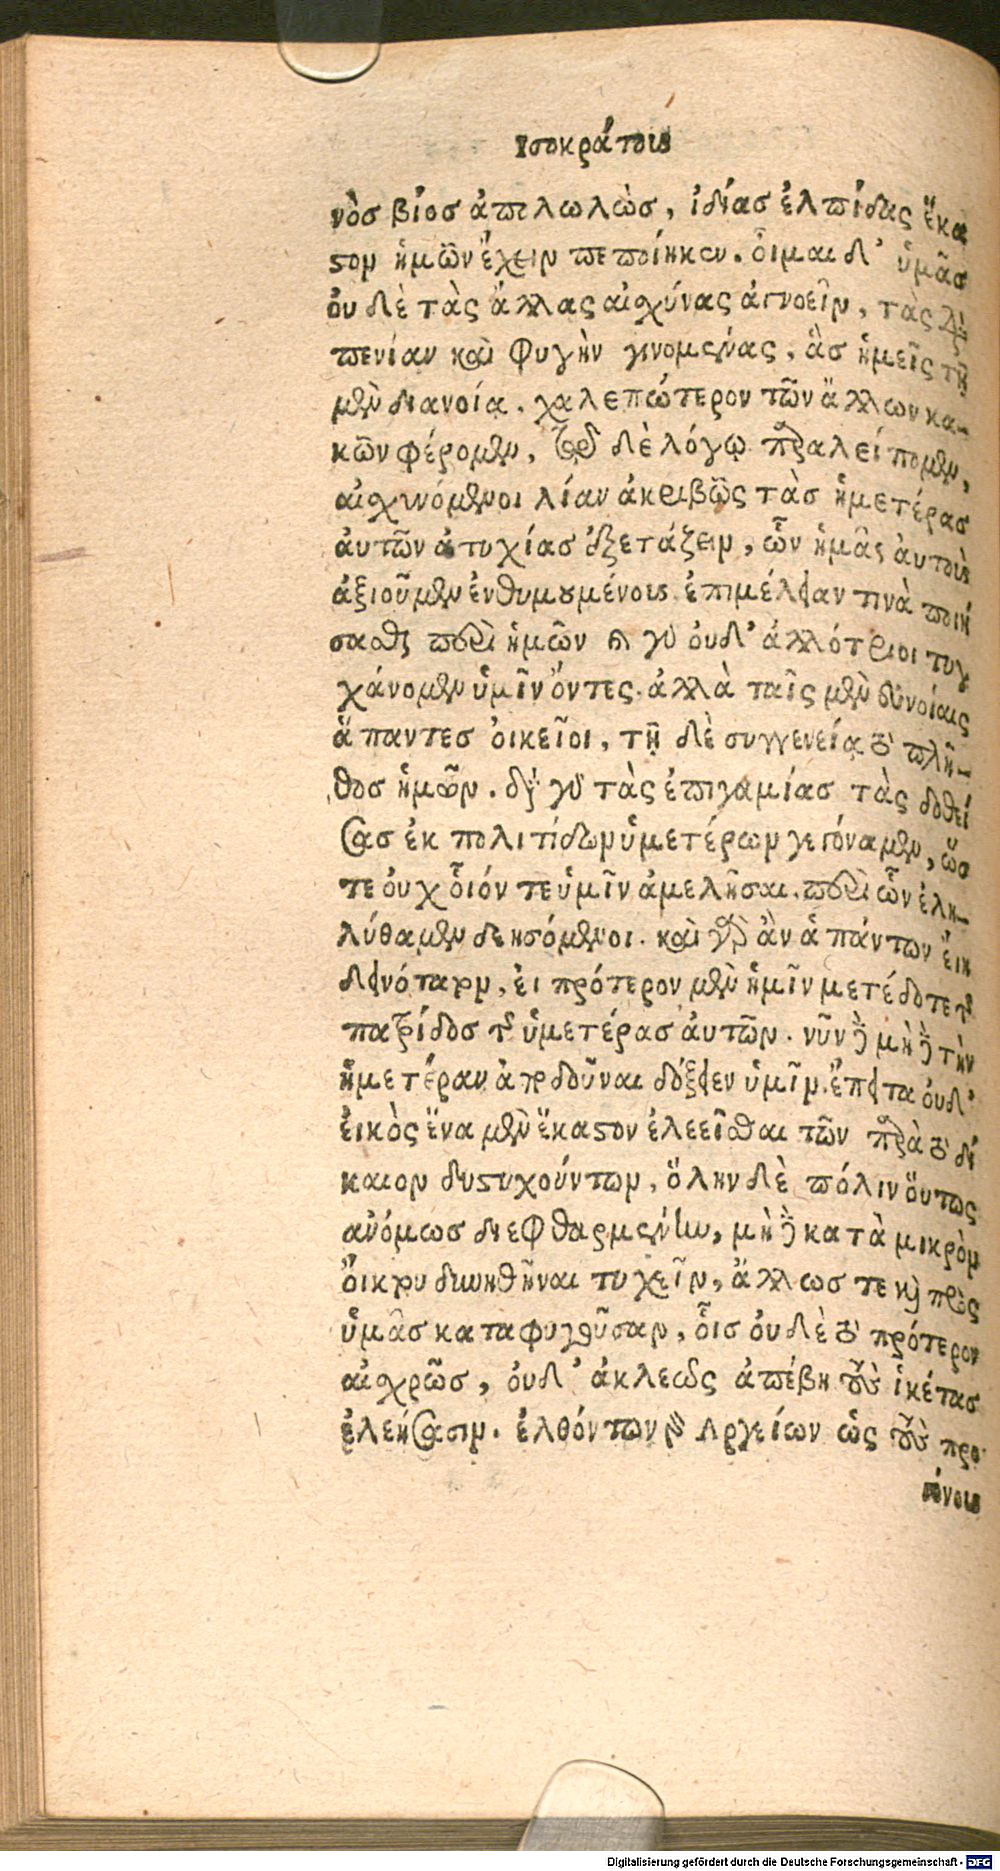 Ισοκράτους
νὸσ βίοσ ἀπολωλὼσ, ἰδίασ ἐλπίδας ἕκα
στον ἡμῶν ἔχειν πεποίηκεν. οἶμαι δ' ὑμᾶσ
οὐδὲ τὰς ἄλλας αἰσχύνας ἀγνοεῖν, τὰς διὰ
πενίαν καὶ φυγὴν γινομένας, ἃσ ἡμεῖς τῇ
μὲν διανοίᾳ. χαλεπώτερον τῶν ἄλλων κα-
κῶν φέρομεν, τῷ δὲ λόγῳ παραλείπομεν,
αἰσχυνόμενοι λίαν ἀκριβῶς τὰσ ἡμετέρασ
ἀυτῶν ἀτυχίασ ἐξετάζειν, ὧν ἡμᾶς ἀυτοὺς
ἀξιοῦμεν ἐνθυμουμένους ἐπιμέλειαν τινὰ ποιή
σασθαι περὶ ἡμῶν καὶ γὰρ οὐδ' ἀλλότριοι τυγ
χάνομεν ὑμῖν ὄντες. ἀλλὰ ταῖς μὲν εὐνοίαις
ἅπαντεσ ὀικεῖοι, τῇ δὲ συγγενείᾳ τὸ πλῆ-
θοσ ἡμῶν. διὰ γὰρ τὰς ἐπιγαμίασ τὰς δοθεί
σασ ἐκ πολιτίδων ὑμετέρων γεγόναμεν, ὥσ
τε οὐχ οἷόν τε ὑμῖν ἀμελῆσαι. περὶ ὧν ἐλη-
λύθαμεν δεησόμενοι. καὶ γὰρ ἂν ἁπάντων εἴη
δεινότατον, ἐι πρότερον μὲν ἡμῖν μετέδοτε τῆς
πατρίδοσ τῆς ὑμετέρασ ἀυτῶν. νῦν δὲ μηδὲ τὴν
ἡμετέραν ἀποδοῦναι δόξειεν ὑμῖν. ἔπειτα οὐδ'
ἐικὸς ἕνα μὲν ἕκαστον ἐλεεῖσθαι τῶν παρὰ τὸ δί
καιον δυστυχούντων, ὅλην δὲ πόλιν οὕτως
ἀνόμωσ διεφθαρμένην, μηδὲ κατὰ μικρὸν
ὄικτου δυνηθῆναι τυχεῖν, ἄλλωσ τε καὶ πρὸς
ὑμᾶσ καταφυγοῦσαν, οἷσ οὐδὲ τὸ πρότερον
αἰσχρῶσ, οὐδ' ἀκλεῶς ἀπέβη τοὺς ἱκέτασ
ἐλεήσασιν. ἐλθόντων γὰρ Αργείων ὡς τοὺς προ
γόνους
Digitalisierung gefördert durch die Deutsche Forschungsgemeinschaft - DFG